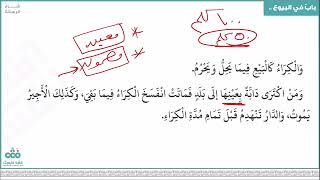 باب في البيوع ..
١٠٠ كلم
٥٠ كلم
* معينة
* مضمونة
وَالْكِرَاءُ كَالْبَيْعِ فِيمَا يَحِلُّ وَيَحْرُمُ.
وَمَنِ اكْتَرَى دَابَّةً بِعَيْنِهَا إِلَى بَلَدٍ فَمَاتَتْ انْفَسَخَ الْكِرَاءُ فِيمَا بَقِيَ، وَكَذَلِكَ الْأَجِيرُ
يَمُوتُ، وَالدَّارُ تَنْهَدِمُ قَبْلَ تَمَامِ مُدَّةِ الْكِرَاءِ.